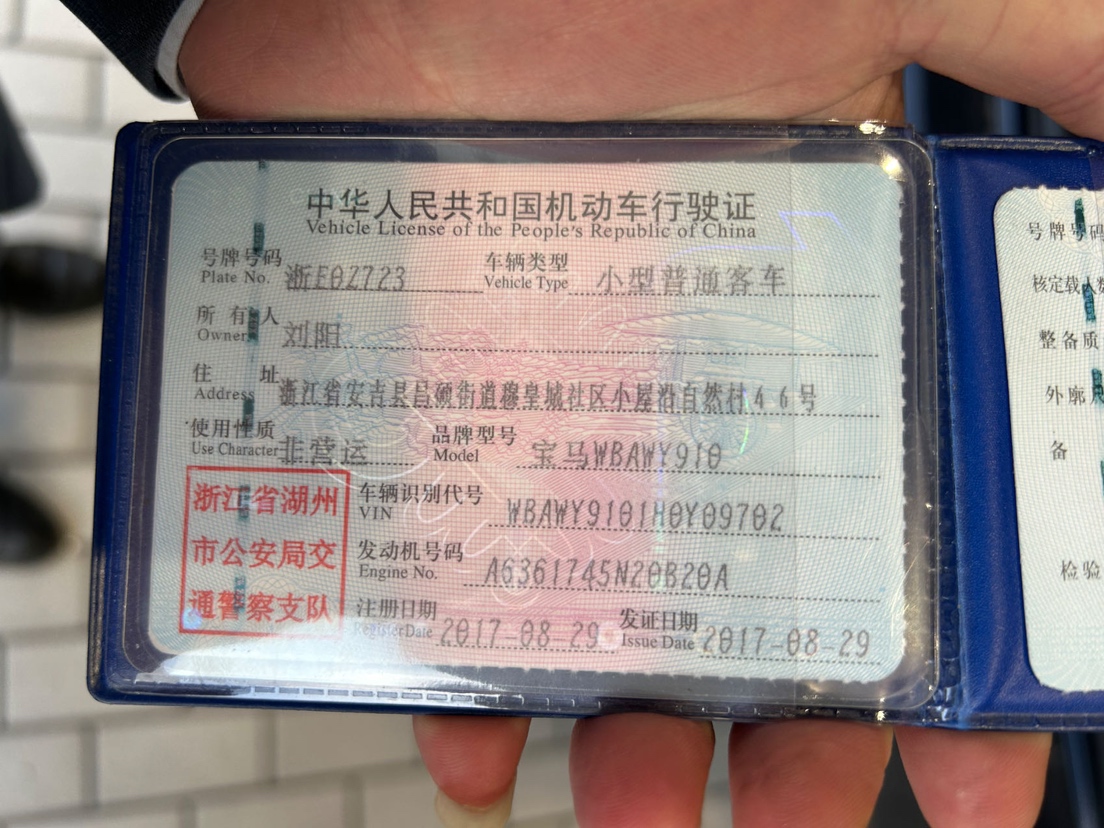 中华人民共和国机动车行驶证
Vehicle License of the People's Republic of China
号牌号码 浙E0Z723 车辆类型 小型普通客车
Plate No. Vehicle Type
所有人 刘阳
Owner
住址 浙江省安吉县昌硕街道穆皇城社区小屋沿自然村46号
Address
使用性质 非营运 品牌型号 宝马WBAWY910
Use Character Model
浙江省湖州
市公安局交
通警察支队
车辆识别代号 WBAWY9101H0Y09702
VIN
发动机号码 A6361745N20B20A
Engine No.
注册日期 2017-08-29 发证日期 2017-08-29
Register Date Issue Date
号牌号码
核定载人数
整备质
外廓尺
备
检验